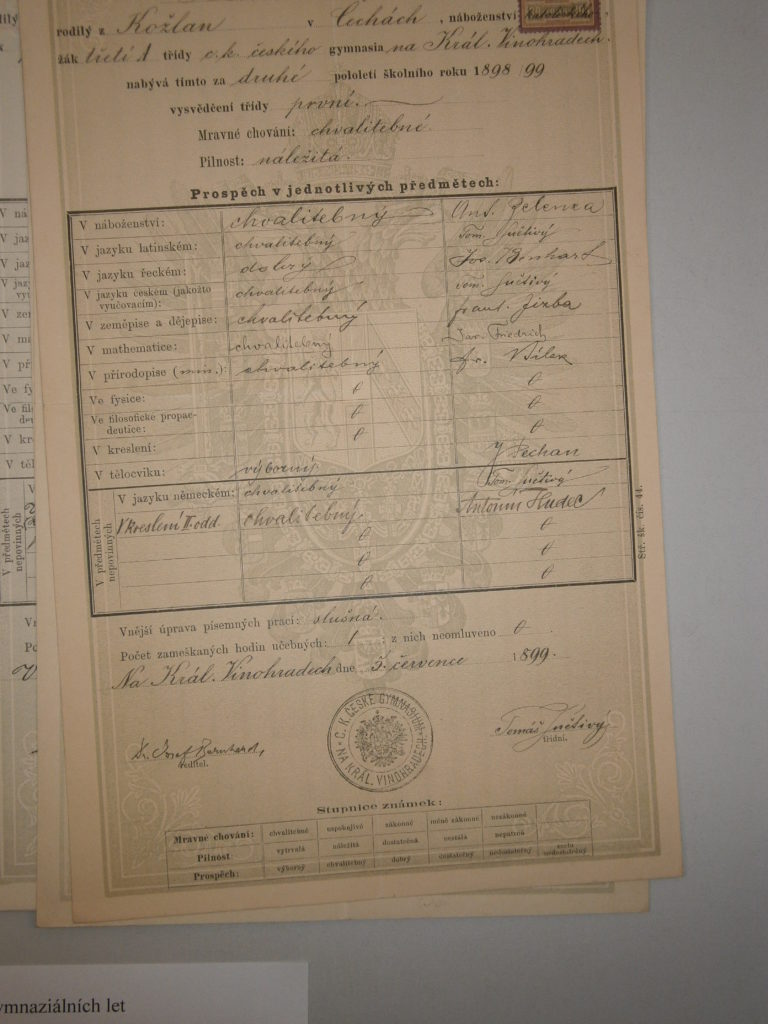 rodilý z Kožlan v Čechách, náboženství katolického,
žák třetí A třídy c. k. českého gymnasia na Král. Vinohradech
nabývá tímto za druhé pololetí školního roku 1898/99
vysvědčení třídy první.
Mravné chování: chvalitebné.
Pilnost: náležitá.
Prospěch v jednotlivých předmětech:
V náboženství: chvalitebný Ant. Zelenka
V jazyku latinském: chvalitebný Tom. Snětivý
V jazyku řeckém: dobrý Jos. Bernhard
V jazyku českém (jakožto vyučovacím): chvalitebný Tom. Snětivý
V zeměpise a dějepise: chvalitebný Frant. Jizba
V mathematice: chvalitebný Jar. Friedrich
V přírodopise (min.): chvalitebný Fr. Bílek
Ve fysice: 0 0
Ve filosofické propaedeutice: 0 0
V kreslení: 0 0
V tělocviku: výborný J Pechan
V předmětech nepovinných
V jazyku německém: chvalitebný Tom. Snětivý
V kreslení II. odd. chvalitebný. Antonín Hudec
0 0
0 0
0 0
Stř. šk. čís. 44.
Vnější úprava písemných prací: slušná.
Počet zameškaných hodin učebných: 1 ; z nich neomluveno 0 .
Na Král. Vinohradech dne 5. července 1899.
C. K. ČESKÉ GYMNASIUM NA KRÁL. VINOHRADECH
Dr. Josef Bernhard,
ředitel.
Tomáš Snětivý
třídní.
Stupnice známek:
Mravné chování: chvalitebné uspokojivé zákonné méně zákonné nezákonné
Pilnost: vytrvalá náležitá dostatečná nestálá nepatrná
Prospěch: výborný chvalitebný dobrý dostatečný nedostatečný zcela nedostatečný
ymnaziálních let